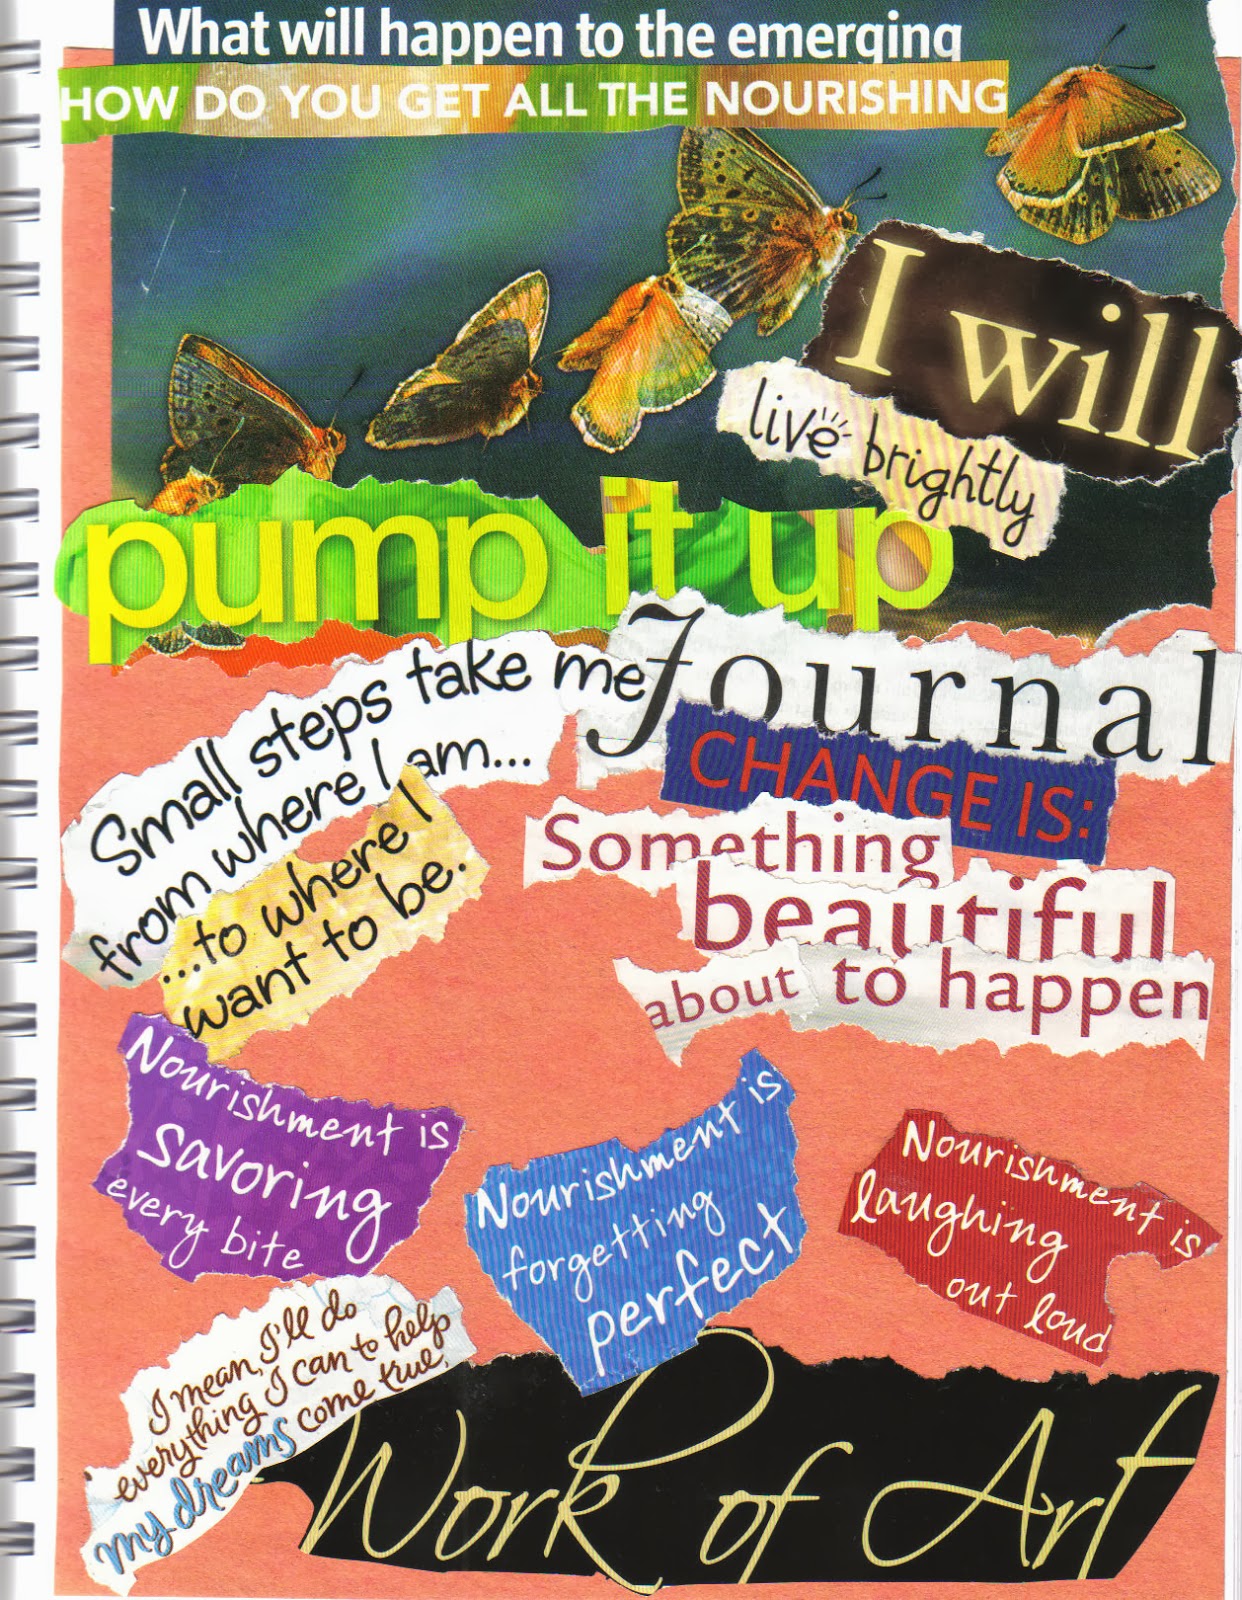 What will happen to the emerging
HOW DO YOU GET ALL THE NOURISHING
I will
live brightly
pump it up
Journal
Small steps take me
from where I am...
...to where I
want to be.
CHANGE IS:
Something
beautiful
about to happen
Nourishment is
savoring
every bite
Nourishment is
forgetting
perfect
Nourishment is
laughing
out loud
I mean, I'll do
everything I can to help
my dreams come true.
Work of Art